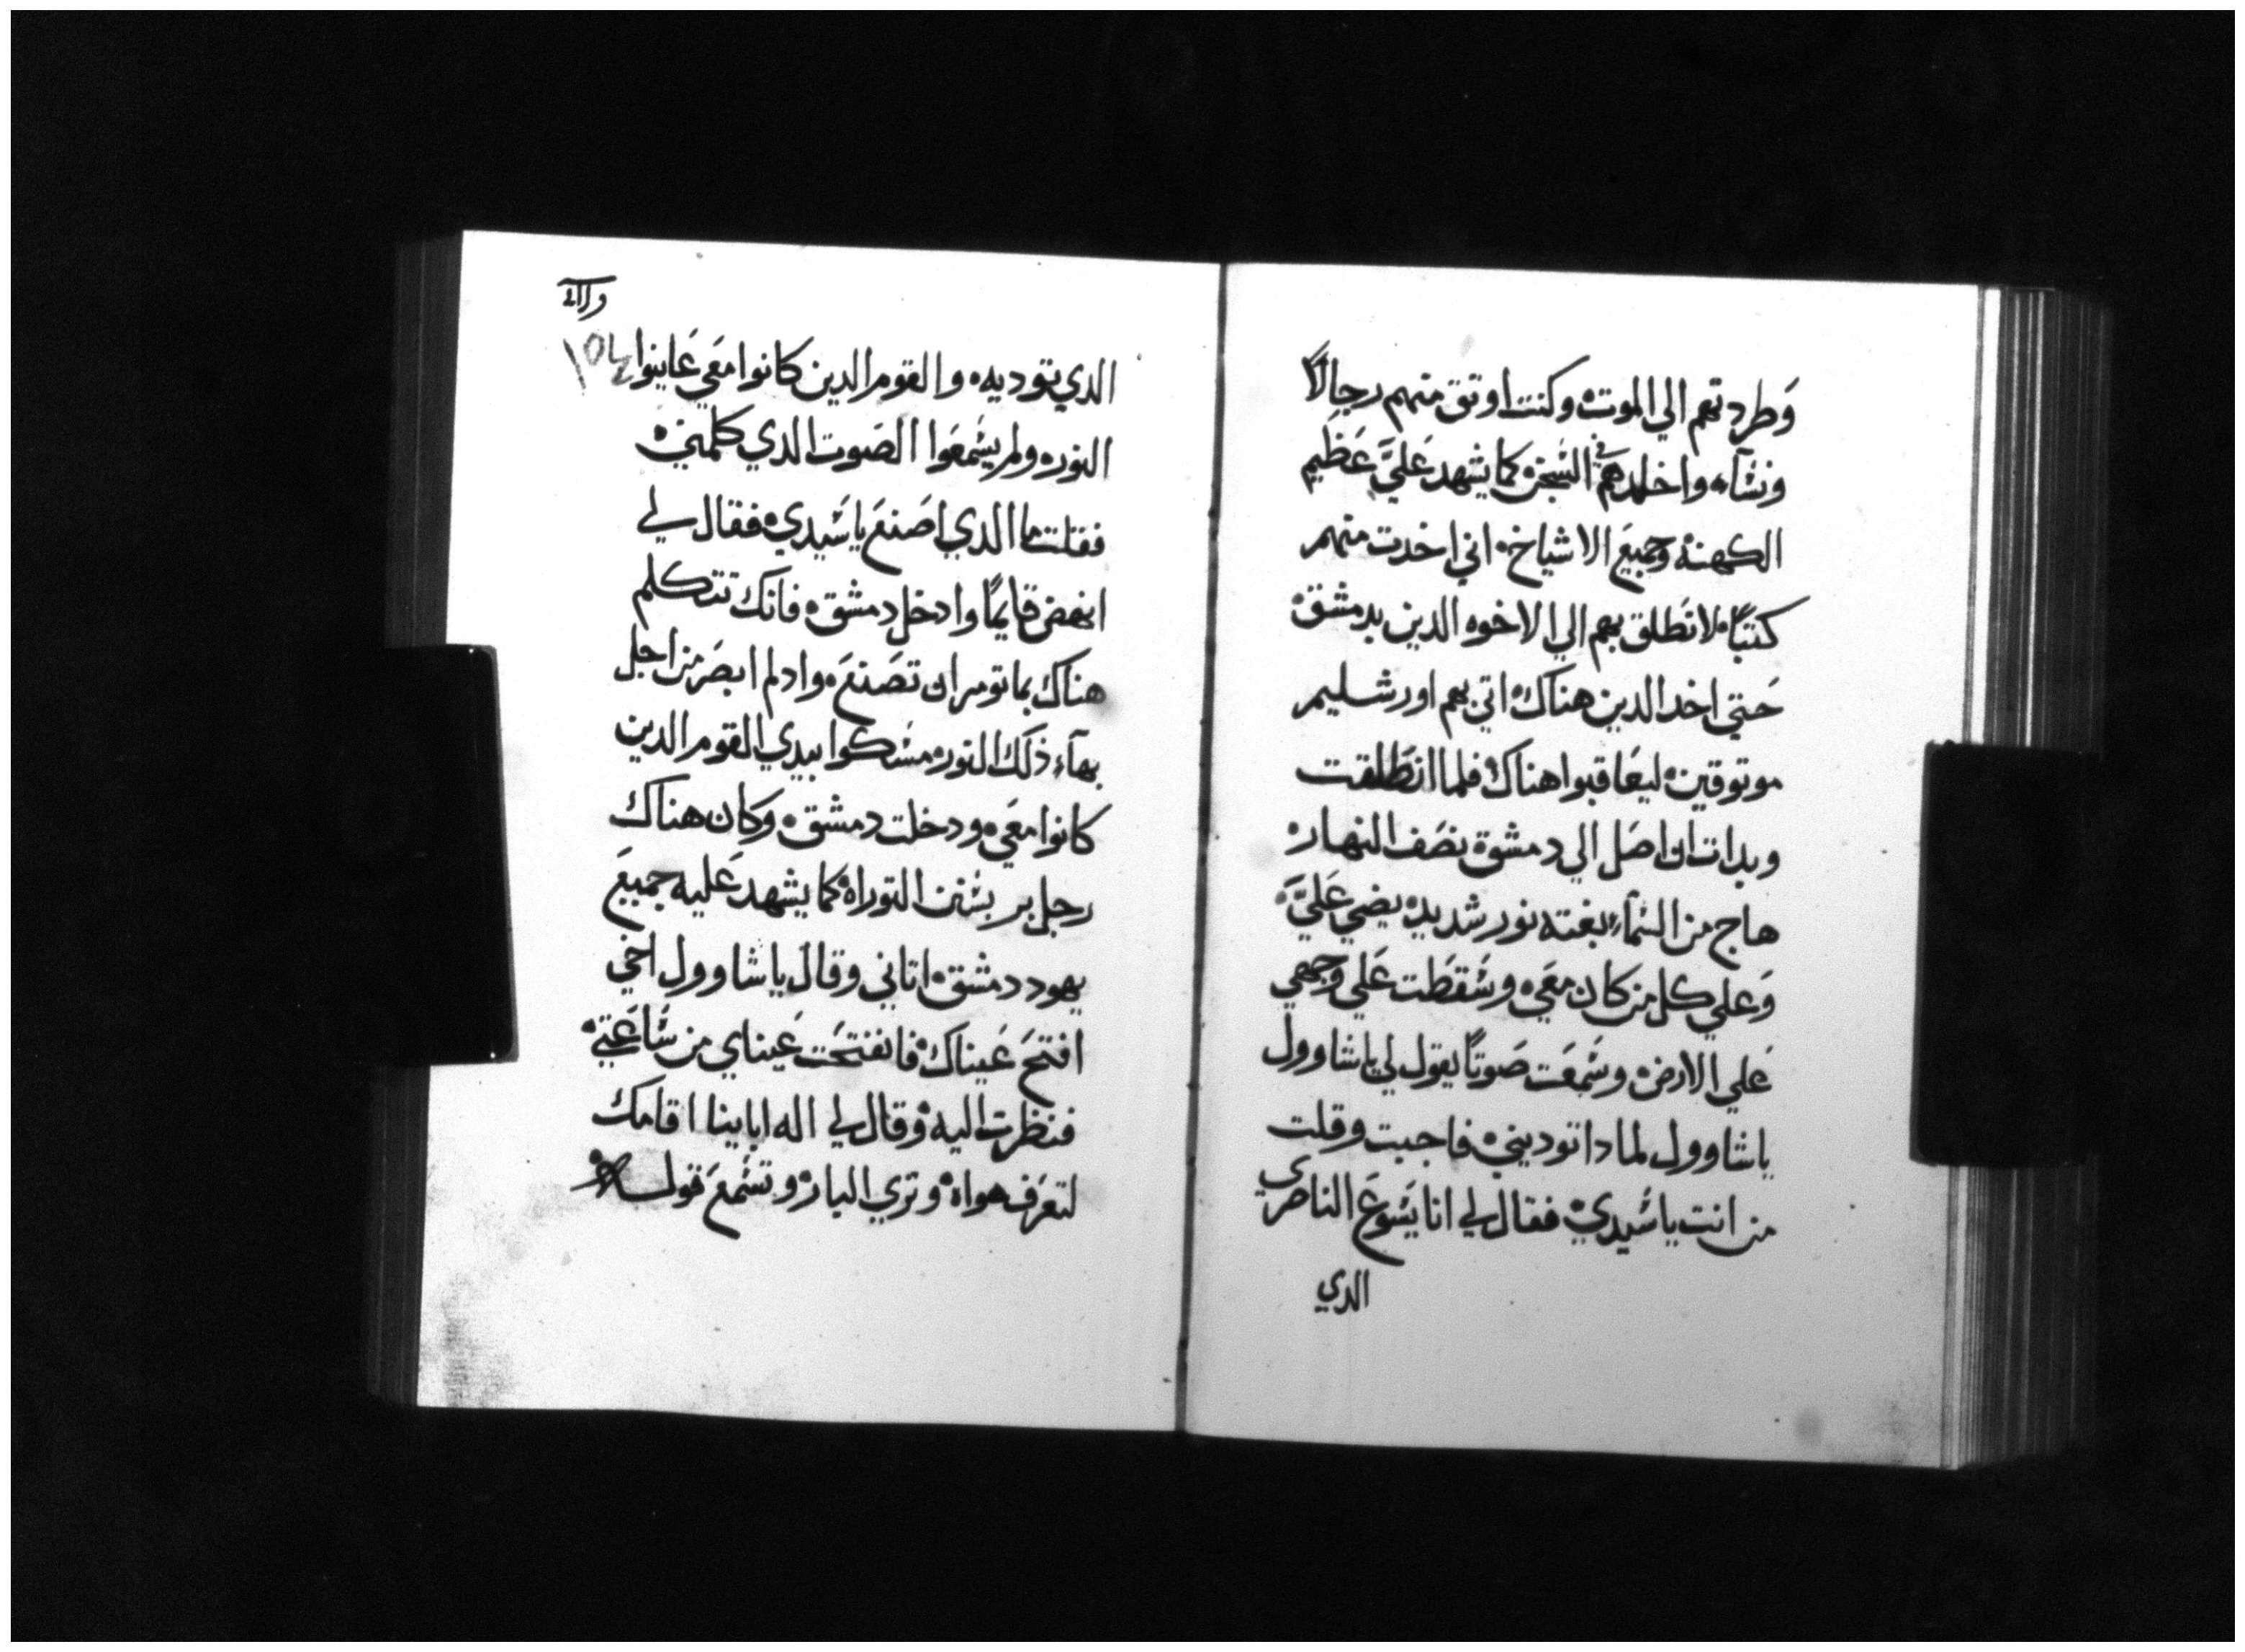 وَطردتهم الي الموت وكنت اوتق منهم رجالًا
ونسَآء واخلدهم في السَجن كما يشهد عَليَّ عَظيم
الكهنه وجميعَ الاشياخ اني اخدت منهم
كتبًا لانطَلق بهم الي الاخوه الدين بدمشق
حَتي اخد الدين هناك اتي بهم اورشليم
موتوقين ليعَاقبوا هناك فلما انطَلقت
وبدات ان اصَل الي دمشق نصَف النهار
هاج من السَمآء بغته نور شديد يضي عَليَّ
وَعلي كل من كان معَي وسَقطَت عَلي وجهي
عَلي الارض وسَمعَت صَوتًا يقول لي ياشاوول
ياشاوول لمادا توديني فاجبت وقلت
من انت ياسَيدي فقال لي انا يسَوعَ الناصري
الدي
١٥٤
الدي توديه والقوم الدين كانوا معَي عَاينوا
النور ولم يسَمعَوا الصَوت الدي كلمني
فقلت ما الدي اصَنعَ ياسَيدي فقال لي
انهض قايمًا وادخل دمشق فانك تتكلم
هناك بما تومر ان تصَنعَ وادلم ابصَر من اجل
بهآء ذلك النور مسَكوا بيدي القوم الدين
كانوا معَي ودخلت دمشق وكان هناك
رجل بر بسَنن التوراه كما يشهد عَليه جميعَ
يهود دمشق اتاني وقال ياشاوول اخي
افتحَ عَيناك فانفتحَت عَيناي من سَاعَتي
فنظرت اليه وقال لي اله اباينا اقامك
لتعَرف هواه وتري البار وتسَمعَ قوله